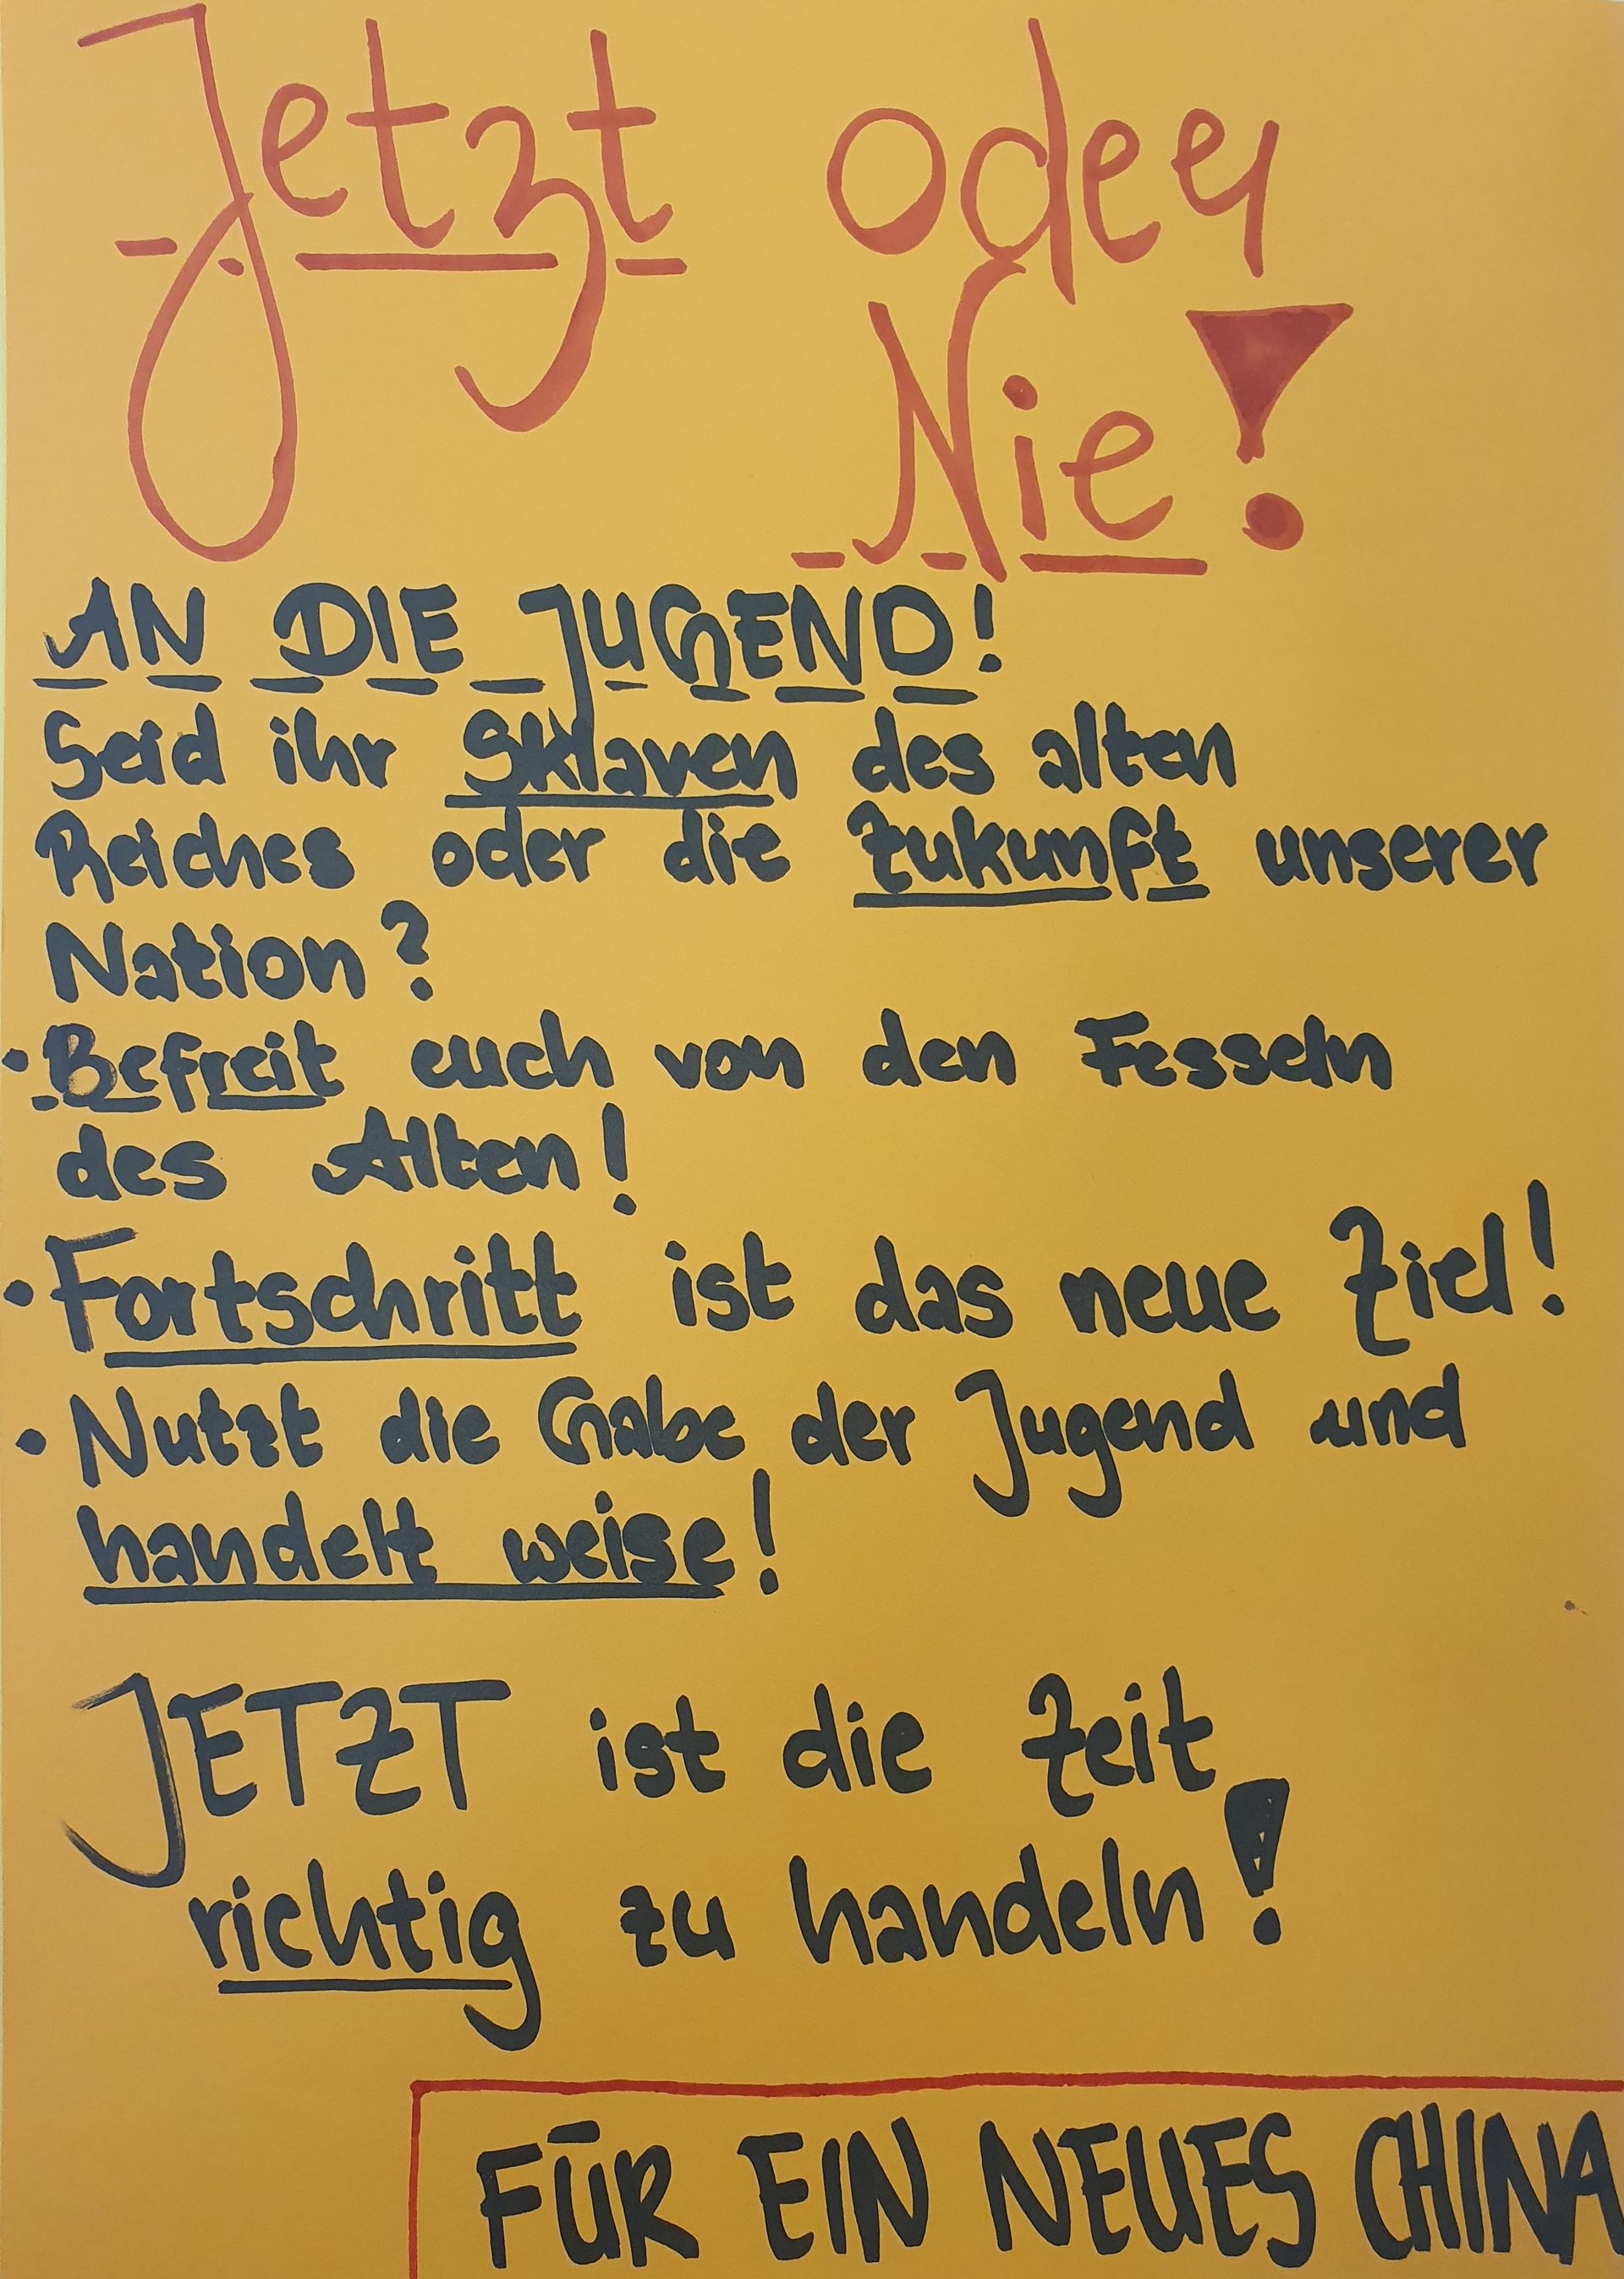 Jetzt oder
Nie!
AN DIE JUGEND!
Seid ihr Sklaven des alten
Reiches oder die Zukunft unserer
Nation?
• Befreit euch von den Fesseln
des Alten!
• Fortschritt ist das neue Ziel!
• Nutzt die Gabe der Jugend und
handelt weise!
JETZT ist die Zeit
richtig zu handeln!
FÜR EIN NEUES CHINA